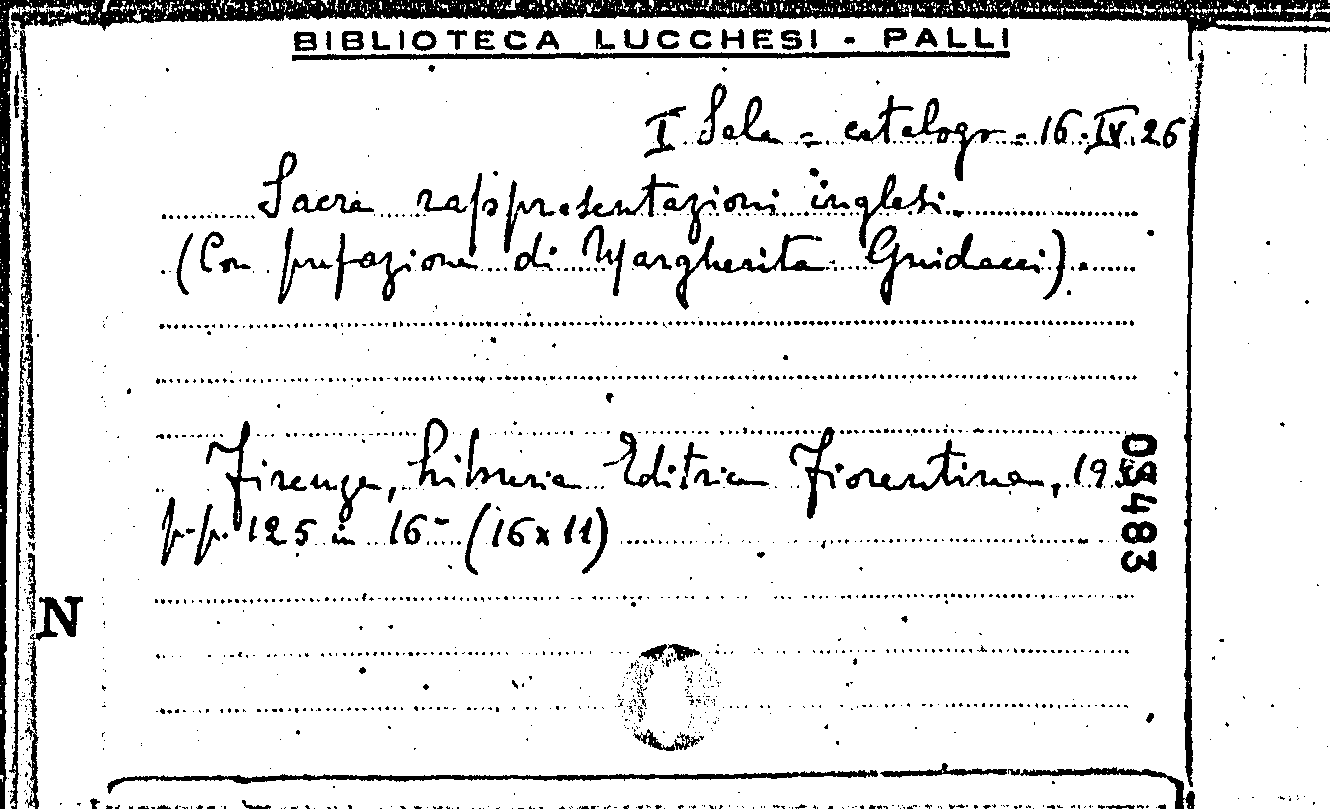 BIBLIOTECA LUCCHESI - PALLI
I Sala = catalogo = 16.IV.26
Sacre rappresentazioni inglesi.
(Con prefazione di Margherita Guidacci).
Firenze, Libreria Editrice Fiorentina,
p.p. 125 in 16- (16x11)
05483
N